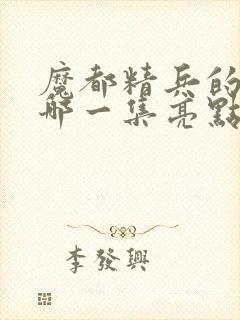 魔都精兵的
哪一集亮點
李發興